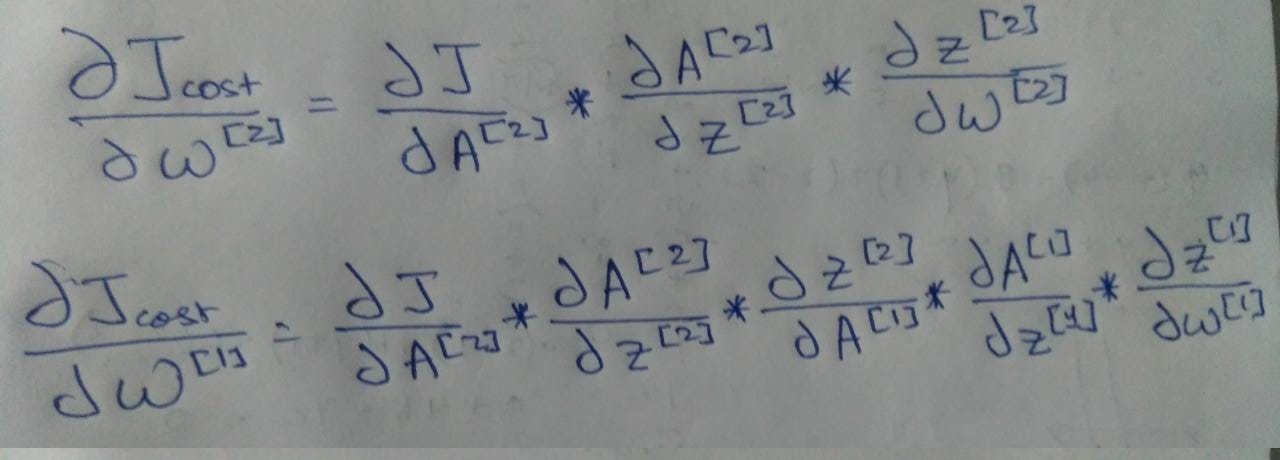 ∂J_cost/∂ω^[2] = ∂J/∂A^[2] * ∂A^[2]/∂z^[2] * ∂z^[2]/∂ω^[2]
∂J_cost/∂ω^[1] = ∂J/∂A^[2] * ∂A^[2]/∂z^[2] * ∂z^[2]/∂A^[1] * ∂A^[1]/∂z^[1] * ∂z^[1]/∂ω^[1]